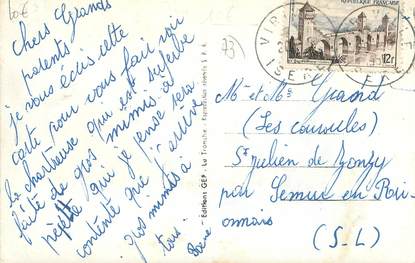 Chers Grands
parents
je vous écris cette
carte pour vous fair voir
La chartreuse qui est superbe
faite de gros mimis à
qui je pense sera
contente que j'arrive
gros mimis à
tous.
Editions GEP - La Tronche - Reproduction interdite S.P.A.
73
REPUBLIQUE FRANÇAISE
12F
ISERE
Mr et Me Grand
(Les couroules)
St Julien de Jonzy
par Semur en Brionnais
(S-L)